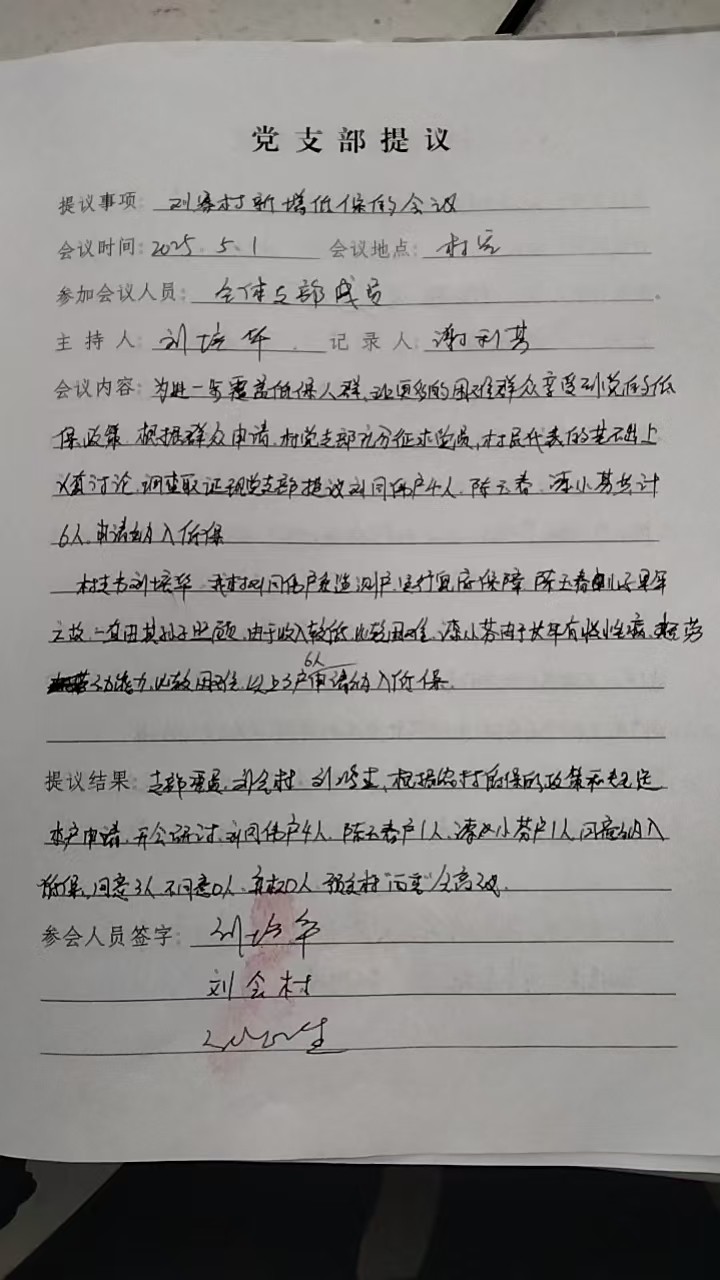 党支部提议
提议事项：刘寨村新增低保的会议
会议时间：2025.5.1 会议地点：村室
参加会议人员：全体支部成员。
主持人：刘培华 记录人：谢利芬
会议内容：为进一步覆盖低保人群，让更多的困难群众享受到党的低
保政策，根据群众申请，村党支部充分征求党员，村民代表的基础上
认真讨论，调查取证现党支部提议刘同伟户4人，陈玉春，漆小芬共计
6人，申请纳入低保
村支书刘培华：我村刘同伟户是监测户，进行兜底保障，陈玉春儿子早年
亡故，一直由其孙子照顾，由于收入较低，比较困难，漆小芬由于长年有慢性病，劳
动能力，比较困难，以上3户6人申请纳入低保。
提议结果：支部委员，刘会村，根据农村低保的政策和规定
本户申请，开会研讨，刘同伟户4人，陈玉春户1人，漆小芬户1人，同意纳入
低保，同意3人，不同意0人，弃权0人，预交村“两委”会商议。
参会人员签字：刘培华
刘会村